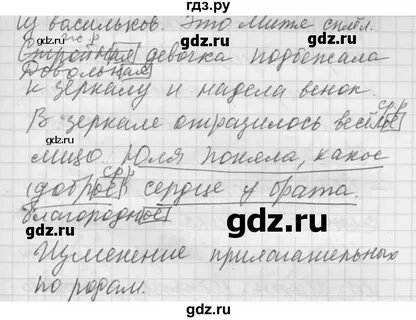 гдз.ру
Из васильков. Это Митя сплёл.
ж.р
Стройная девочка подбежала
Довольная
к зеркалу и надела венок.
ср.р
В зеркале отразилось весёлое
лицо. Юля поняла, какое
ср.р
доброе сердце у брата.
благородное
Изменение прилагательных
по родам.
gdz.ru